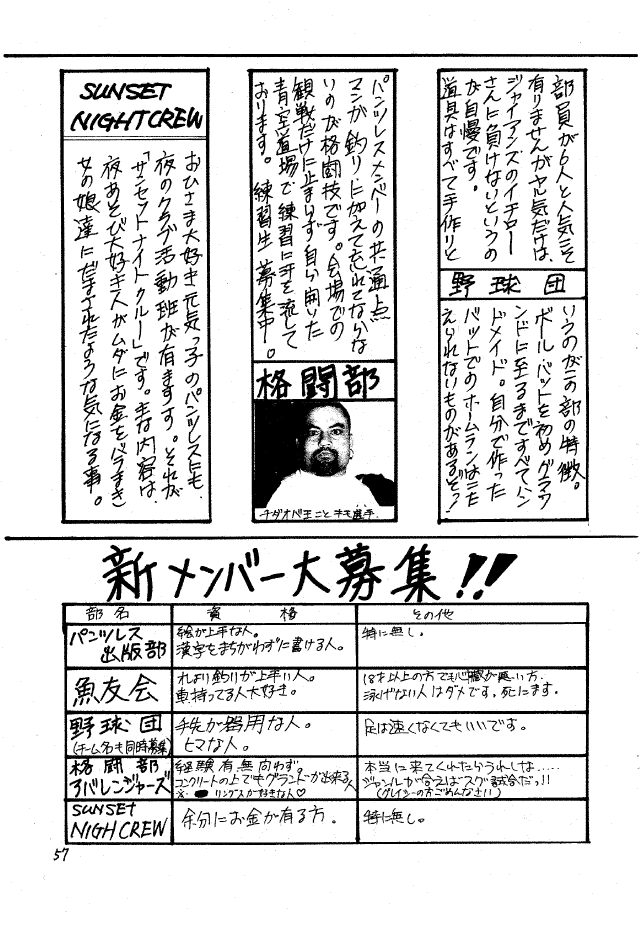 部員が6人と人気こそ
有りませんがヤル気だけは、
ジャイアンズのイチロー
さんに負けないというの
が自慢です。
道具はすべて手作りと
野球団
いうのがこの部の特徴。
ボール、バットを初めグラウ
ンドに至るまですべてハン
ドメイド。自分で作った
バットでのホームランはこた
えられないものがあるぞっ!
パンツレスメンバーの共通点
マンガ、釣りに加えて忘れてならな
いのが格闘技です。会場での
観戦だけに止まらず自ら開いた
青空道場で練習に汗を流して
おります。練習生募集中。
格闘部
チダオベ王ことキモ選手.
SUNSET
NIGHTCREW
おひさま大好き元気っ子のパンツレスにも
夜のクラブ活動班が有ります。それが
「サンセットナイトクルー」です。主な内容は、
夜あそび大好き人がムダにお金をバラまき
女の娘達にだまされたような気になる事。
新メンバー大募集!!
部名 資格 その他
パンツレス
出版部
絵が上手な人。
漢字をまちがわずに書ける人。
特に無し。
魚友会
れより釣りが上手い人。
車持ってる人大好き。
18才以上の方でも心臓が悪い方、
泳げない人はダメです。死にます。
野球団
(チーム名も同時募集)
手先が器用な人。
ヒマな人。
足は速くなくてもいいです。
格闘部
アバレンジャーズ
経験有無問わず。
コンクリートの上でもグランドが出来る人
※ リングスが好きな人♡
本当に来てくれたらうれしな.....
ジャンルが合えばスグ試合だっ!!
(グレイシーの方ごめんなさい)
SUNSET
NIGHCREW
余分にお金が有る方。
特に無し。
57